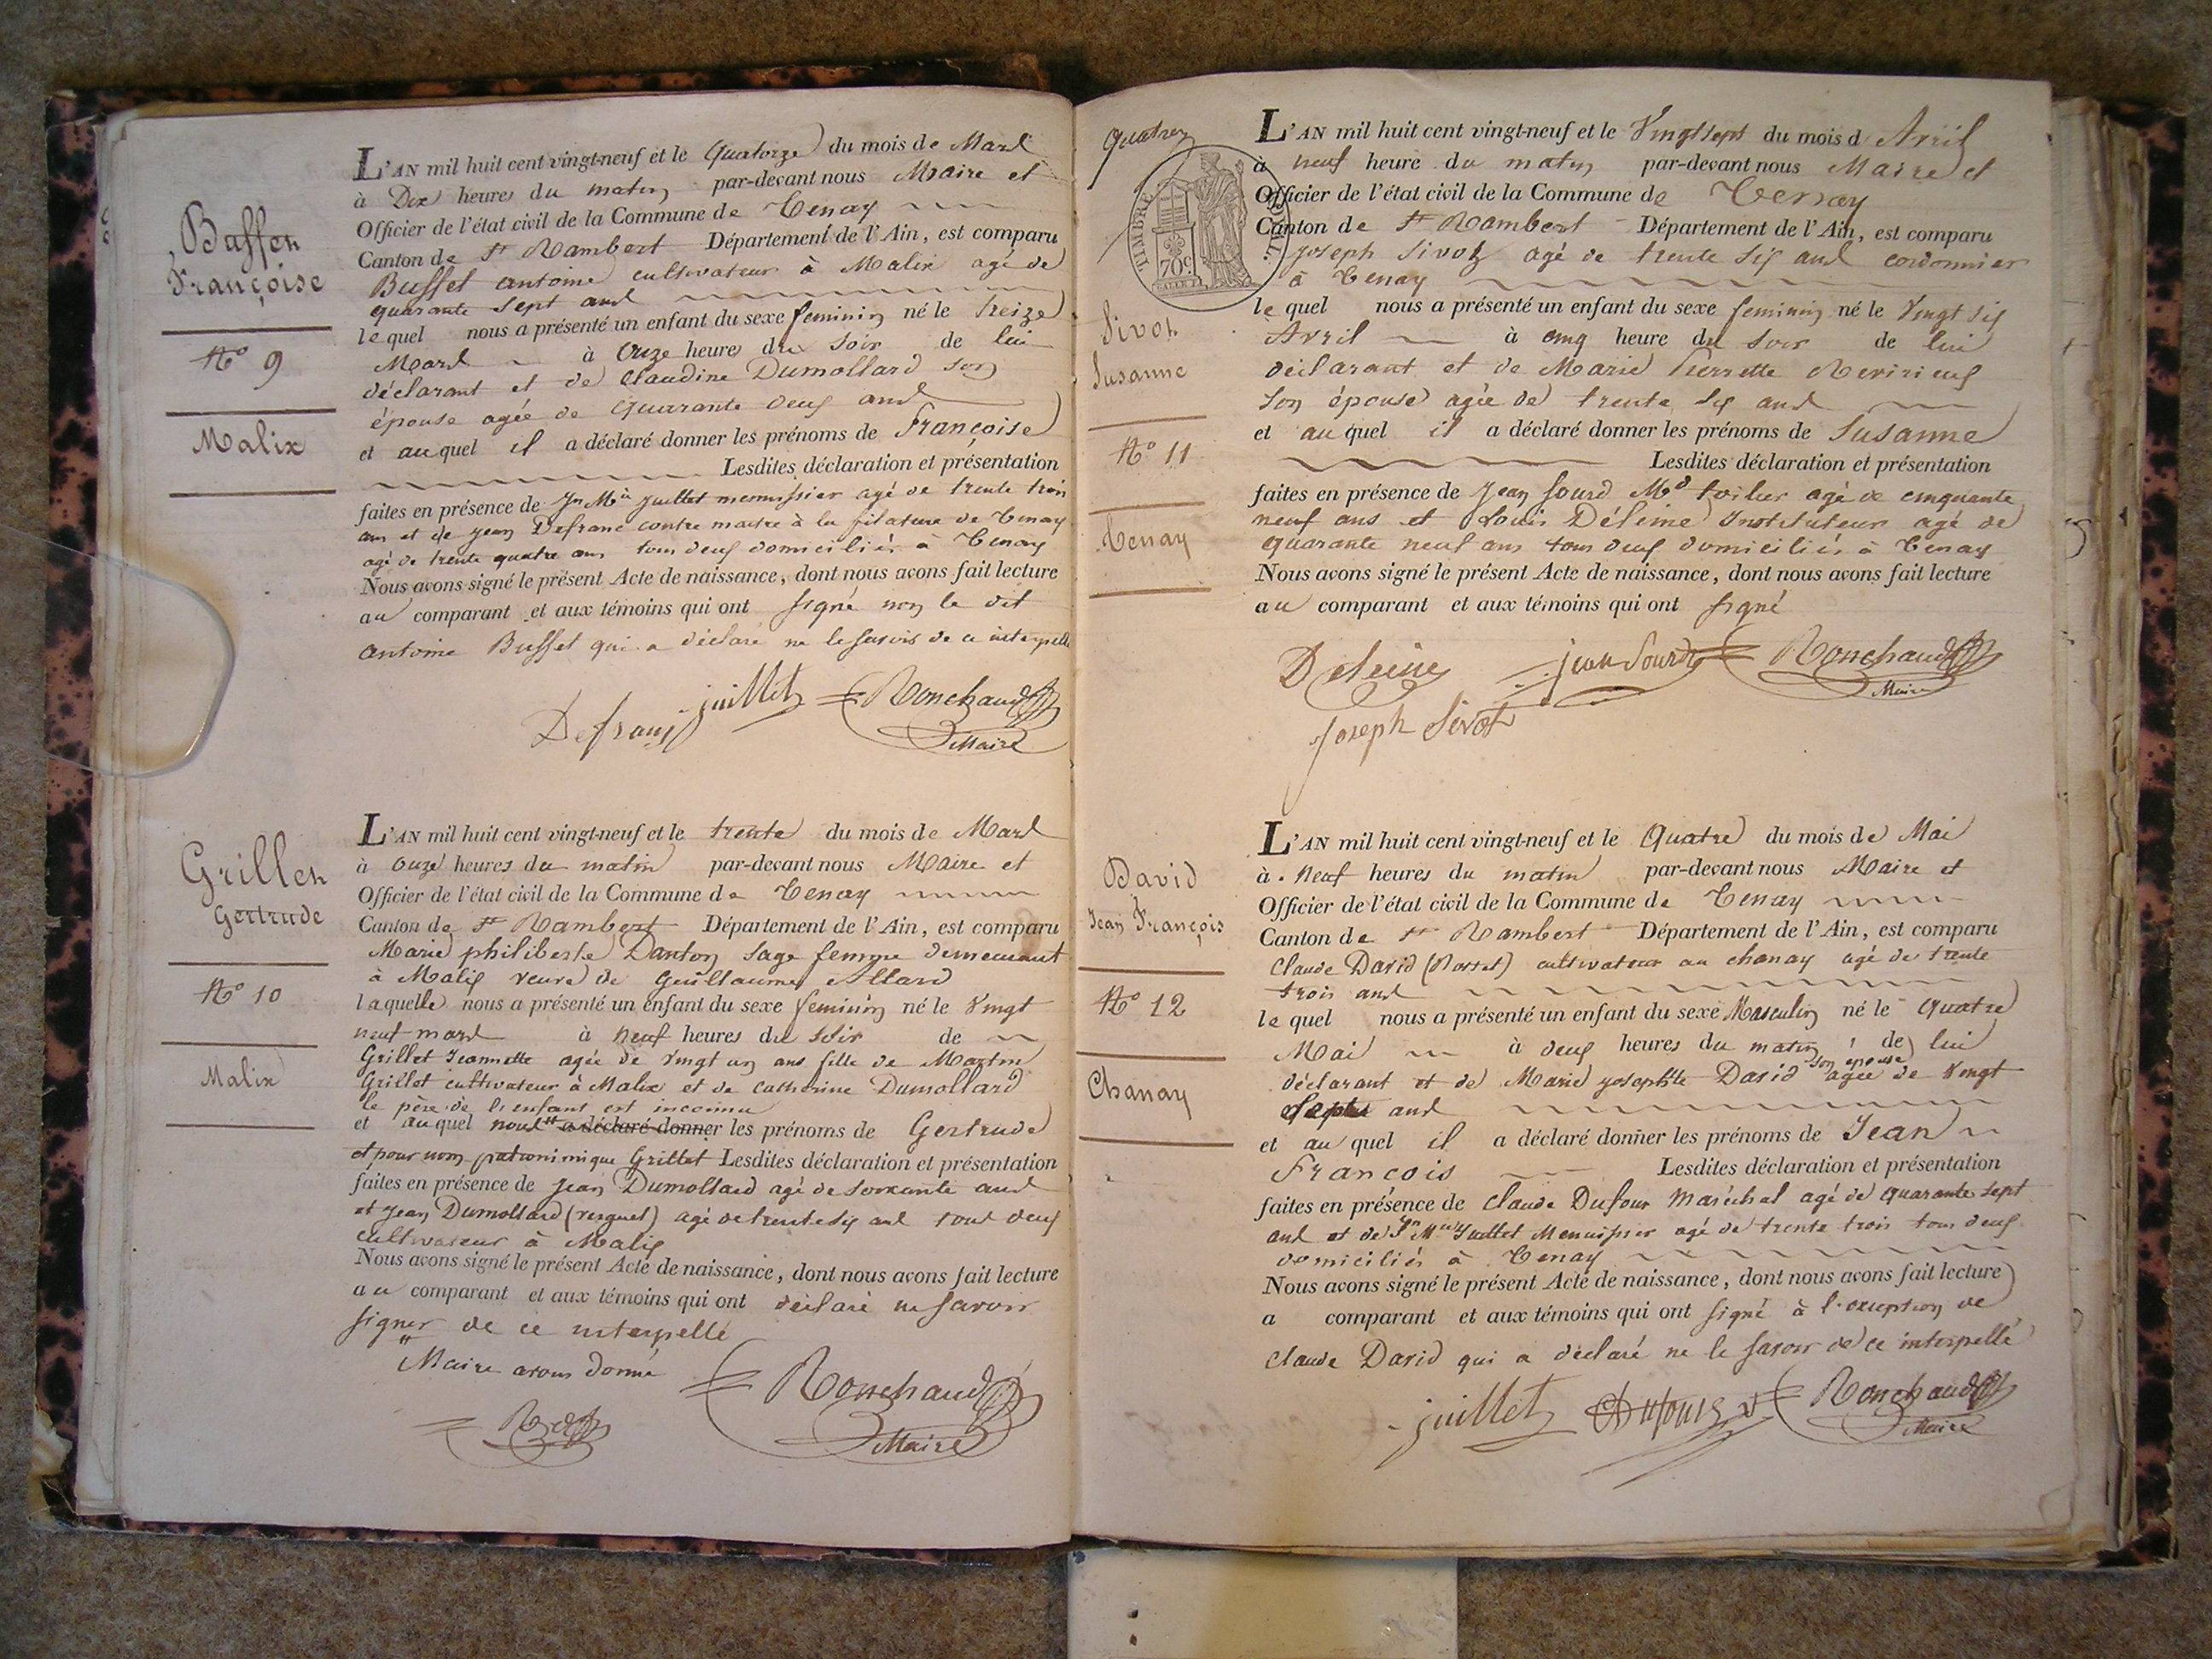 Buffet
Françoise
N° 9
Malix
L'AN mil huit cent vingt-neuf et le Quatorze du mois de Mars
à Dix heures du matin par-devant nous Maire et
Officier de l'état civil de la Commune de Tenay
Canton de St Rambert Département de l'Ain, est comparu
Buffet antoine cultivateur à Malix agé de
quarante sept ans
le quel nous a présenté un enfant du sexe feminin né le treize
Mars à Onze heures du soir de lui
déclarant et de Claudine Dumollard son
épouse agée de Quarante deux ans
et auquel il a déclaré donner les prénoms de Françoise
Lesdites déclaration et présentation
faites en présence de Jn Mie Juillet menuisier agé de trente trois
ans et de jean Defranc contre maitre à la filature de Tenay
agé de trente quatre ans tous deux domiciliés à Tenay
Nous avons signé le présent Acte de naissance, dont nous avons fait lecture
au comparant et aux témoins qui ont signé non le dit
antoine Buffet qui a déclaré ne le savoir de ce interpellé
Defranc juillet Ronchaud
Maire
Grillet
Gertrude
N° 10
Malix
L'AN mil huit cent vingt-neuf et le trente du mois de Mars
à onze heures du matin par-devant nous Maire et
Officier de l'état civil de la Commune de Tenay
Canton de St Rambert Département de l'Ain, est comparu
Marie philiberte Danton sage femme demeurant
à Malix veuve de Guillaume Allard
laquelle nous a présenté un enfant du sexe feminin né le vingt
neuf mars à neuf heures du soir de
Grillet Jeannette agée de vingt un ans fille de Martin
Grillet cultivateur à Malix et de Catherine Dumollard
le père de l'enfant est inconnu
et auquel nous a déclaré donner les prénoms de Gertrude
et pour nom patronimique Grillet Lesdites déclaration et présentation
faites en présence de Jean Dumollard agé de soixante ans
et jean Dumollard (verguet) agé de trente six ans tous deux
cultivateur à Malix
Nous avons signé le présent Acte de naissance, dont nous avons fait lecture
au comparant et aux témoins qui ont déclaré ne savoir
signer de ce interpellé
" Maire avons donné
Ronchaud
Maire
quatre
TIMBRE ROYAL
70c
Sivot
Susanne
N° 11
Tenay
L'AN mil huit cent vingt-neuf et le Vingt sept du mois d Avril
à neuf heure du matin par-devant nous Maire et
Officier de l'état civil de la Commune de Tenay
Canton de St Rambert Département de l'Ain, est comparu
joseph Sivot agé de trente six ans cordonnier
à Tenay
le quel nous a présenté un enfant du sexe feminin né le Vingt six
Avril à cinq heure du soir de lui
déclarant et de Marie Pierrette
son épouse agée de trente six ans
et auquel il a déclaré donner les prénoms de Susanne
Lesdites déclaration et présentation
faites en présence de Jean Sourd Md toilier agé de cinquante
neuf ans et Louis Déleine Instituteur agé de
quarante neuf ans tous deux domiciliés à Tenay
Nous avons signé le présent Acte de naissance, dont nous avons fait lecture
au comparant et aux témoins qui ont signé
Deleine jean Sourd Ronchaud
Maire
Joseph Sivot
David
Jean François
N° 12
Chanay
L'AN mil huit cent vingt-neuf et le Quatre du mois de Mai
à Neuf heures du matin par-devant nous Maire et
Officier de l'état civil de la Commune de Tenay
Canton de St Rambert Département de l'Ain, est comparu
Claude David (Rosset) cultivateur au chanay agé de trente
trois ans
le quel nous a présenté un enfant du sexe Masculin né le quatre
Mai à deux heures du matin de lui
déclarant et de Marie josephte David son épouse agée de vingt
sept ans
et au quel il a déclaré donner les prénoms de Jean
François Lesdites déclaration et présentation
faites en présence de Claude Dufour Maréchal agé de quarante sept
ans et de Jn Mie Juillet Menuisier agé de trente trois tous deux
domiciliés à Tenay
Nous avons signé le présent Acte de naissance, dont nous avons fait lecture
a comparant et aux témoins qui ont signé à l'exception de
Claude David qui a déclaré ne le savoir de ce interpellé
juillet Dufour Ronchaud
Maire